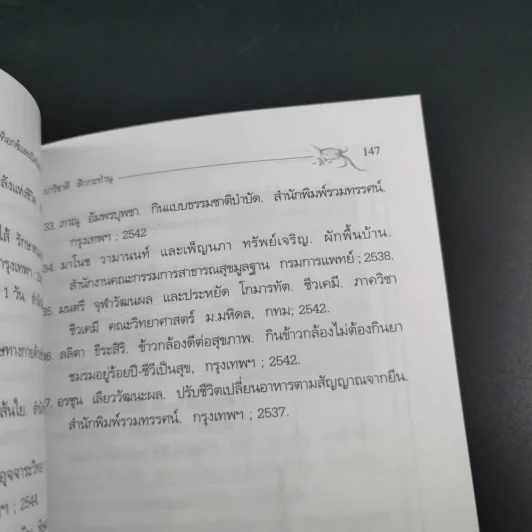 147
33. ภาณุ อัมพรบุพชา. กินแบบธรรมชาติบำบัด. สำนักพิมพ์รวมทรรศน์.
กรุงเทพฯ ; 2542
34. มาโนช วามานนท์ และเพ็ญนภา ทรัพย์เจริญ. ผักพื้นบ้าน.
สำนักงานคณะกรรมการสาธารณสุขมูลฐาน กรมการแพทย์ ; 2538.
35. มนตรี จุฬาวัฒนผล และประหยัด โกมารทัต. ชีวเคมี. ภาควิชา
ชีวเคมี คณะวิทยาศาสตร์ ม.มหิดล, กทม; 2542.
6. ลลิตา ธีระสิริ. ข้าวกล้องดีต่อสุขภาพ. กินข้าวกล้องไม่ต้องกินยา
ชมรมอยู่ร้อยปี-ชีวีเป็นสุข, กรุงเทพฯ ; 2542.
7. อรชุน เลียววัฒนะผล. ปรับชีวิตเปลี่ยนอาหารตามสัญญาณจากยีน.
สำนักพิมพ์รวมทรรศน์. กรุงเทพฯ ; 2537.
รักษา
กรุงเทพฯ
1 วัน
สันใย.
; 2544